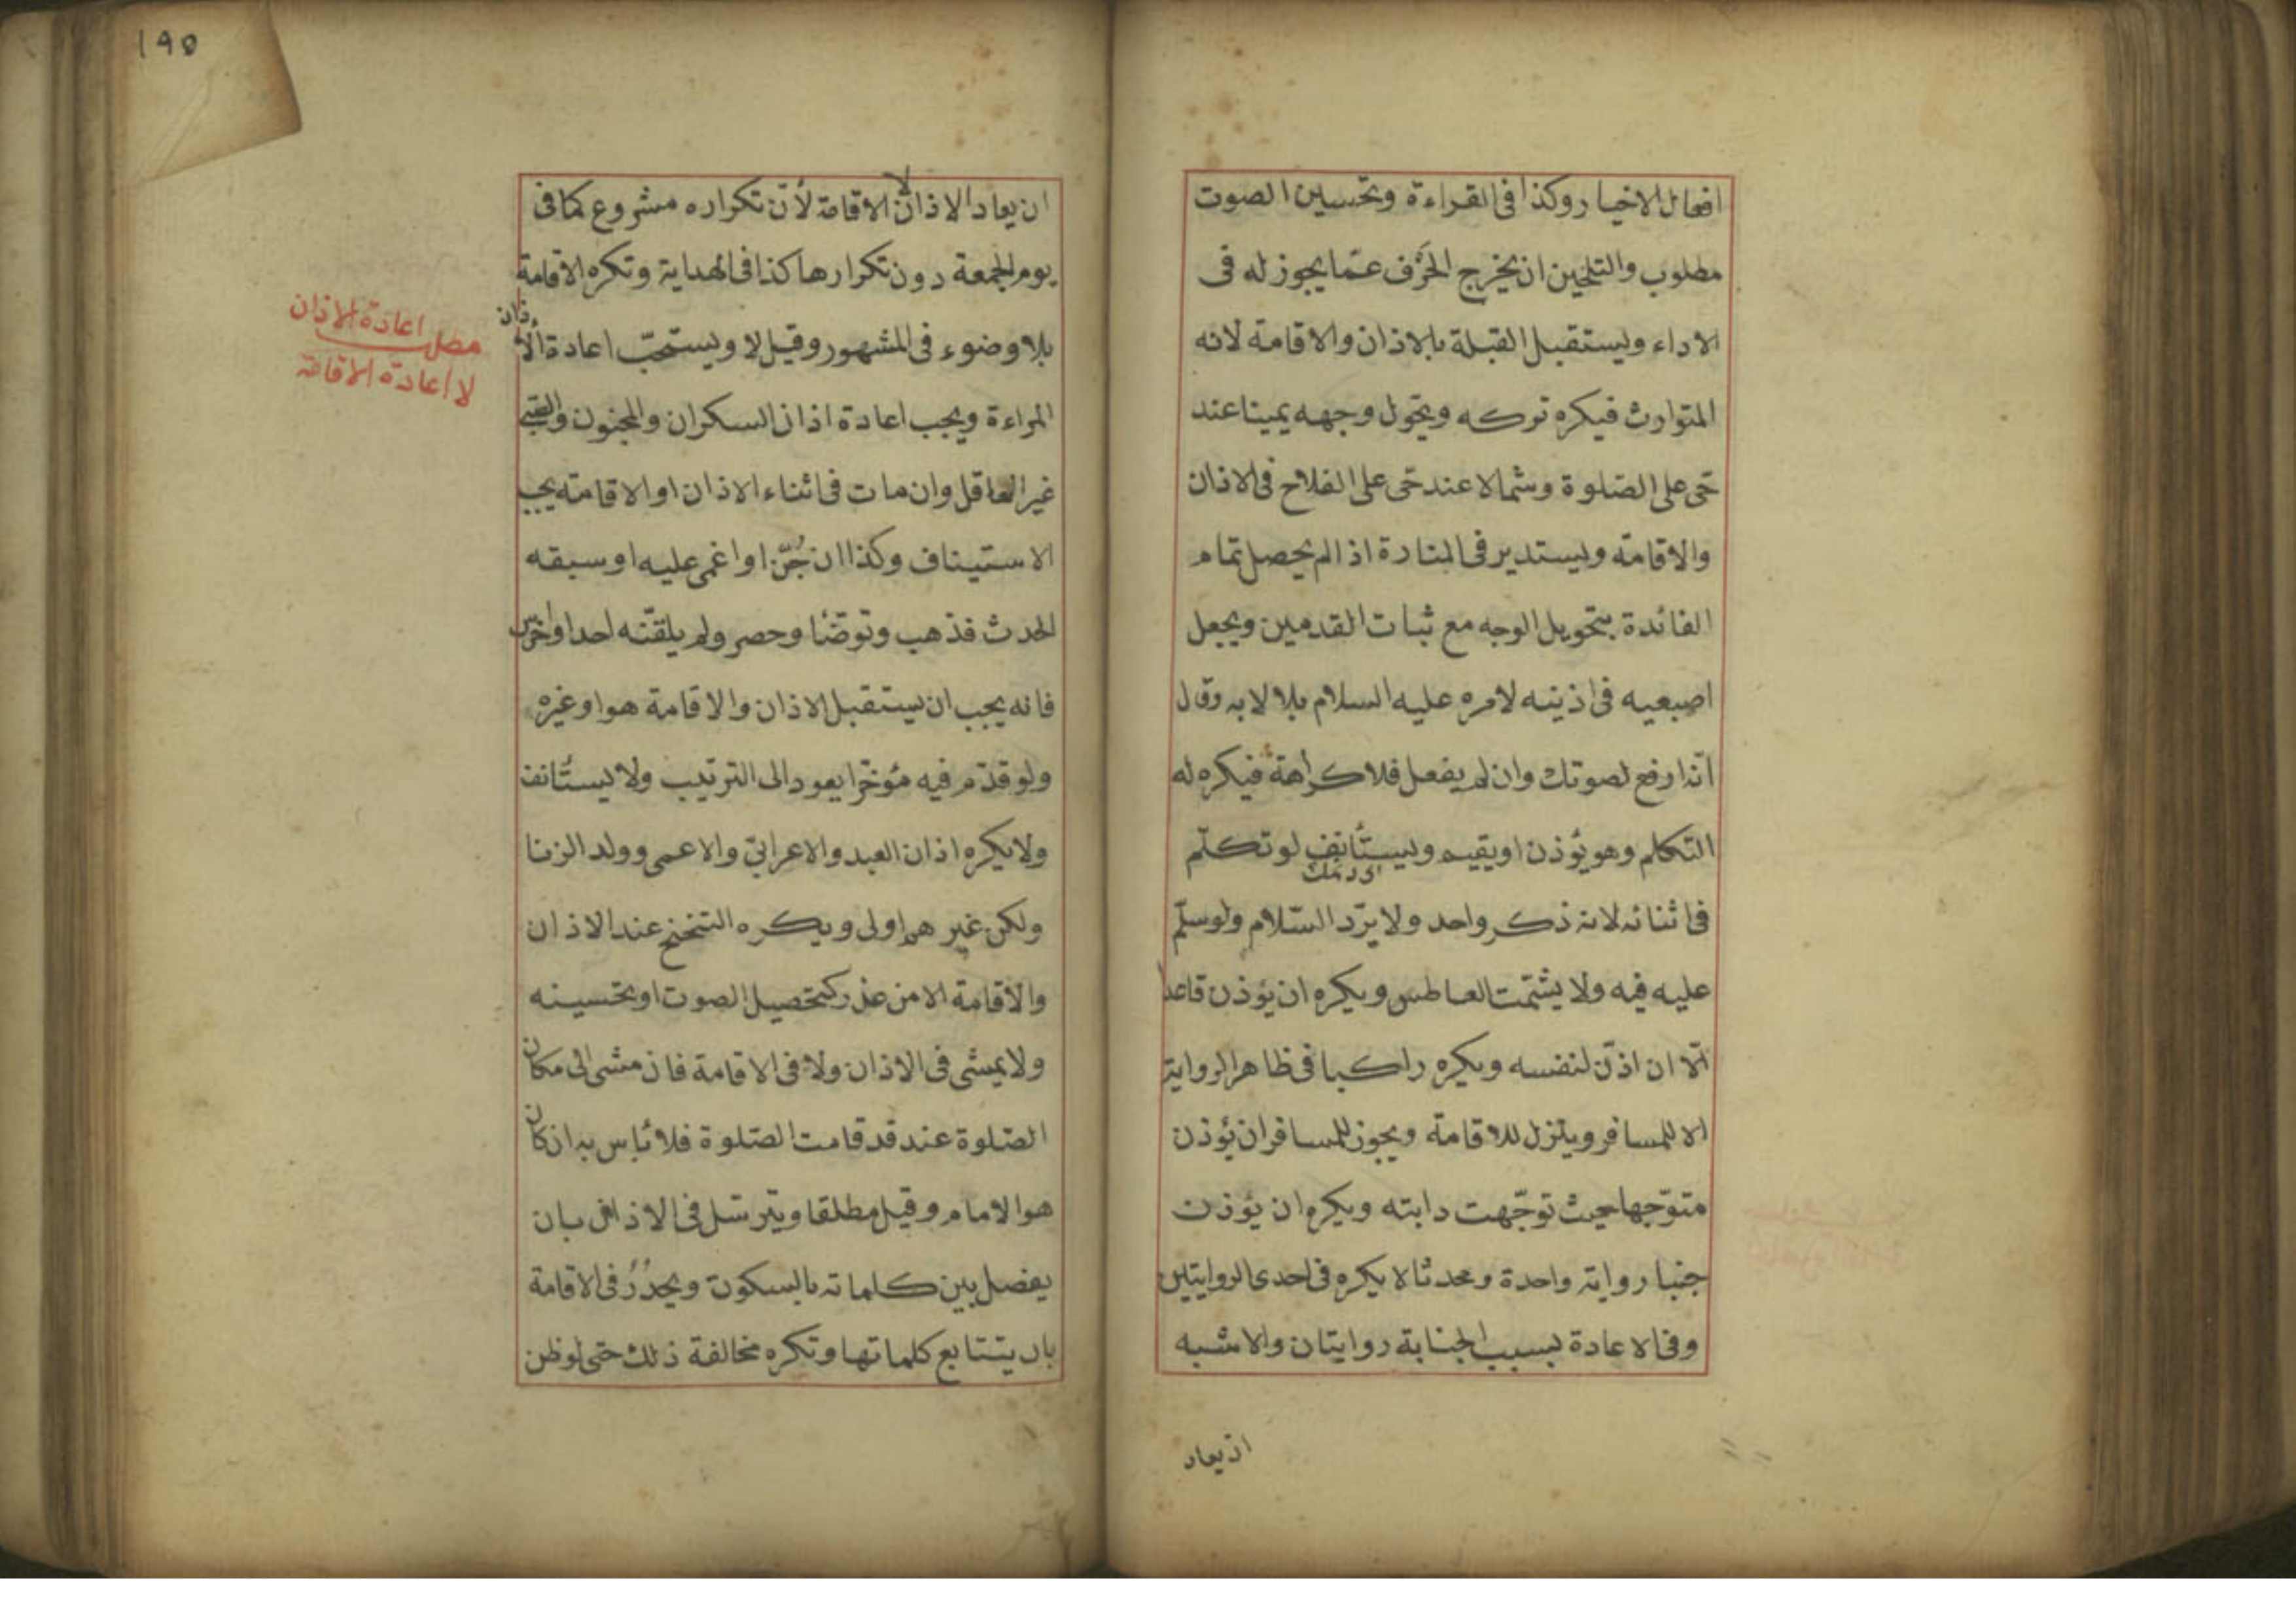 افعال الاخيار وكذا فى القراءة وتحسين الصوت
مطلوب والتلحين ان يخرج الحَرْف عمّا يجوز له فى
الاداء ويستقبل القبلة بالاذان والاقامة لانه
المتوارث فيكره تركه ويحوّل وجهه يمينا عند
حىّ على الصّلوة وشمالا عند حىّ على الفلاح فى الاذان
والاقامة ويستدير فى المنارة اذا لم يحصل تمام
الفائدة بتحويل الوجه مع ثبات القدمين ويجعل
اصبعيه فى اذنيه لامره عليه السلام بلالا به وقال
انّه ارفع لصوتك وان لم يفعل فلا كراهة فيكره له
التكلم وهو يؤذن او يقيم ويستأنف لو تكلّم
فى اثنائه لانه ذكر واحد ولا يردّ السّلام ولو سلّم
عليه فيه ولا يشمّت العاطس ويكره ان يؤذن قاعدا
الّا ان اذّن لنفسه ويكره راكبا فى ظاهر الرواية
الا للمسافر وينزل للاقامة ويجوز للمسافر ان يؤذن
متوجّها حيث توجّهت دابته ويكره ان يؤذن
جنبا رواية واحدة ومحدثا لا يكره فى احدى الروايتين
وفى الاعادة بسبب الجنابة روايتان والاشبه
ان يعاد
١٩٥
ان يعاد الاذان لا الاقامة لأنّ تكراره مشروع كما فى
يوم الجمعة دون تكرارها كذا فى الهداية وتكره الاقامة
بلا وضوء فى المشهور وقيل لا ويستحبّ اعادة الأذان
المراءة ويجب اعادة اذان السكران والمجنون والصّبى
غير العاقل وان مات فى اثناء الاذان او الاقامة يجب
الاستيناف وكذا ان جُنّ او اغمى عليه او سبقه
الحدث فذهب وتوضّأ وحصر ولم يلقّنه احد او خرس
فانه يجب ان يستقبل الاذان والاقامة هو او غيره
ولو قدّم فيه مؤخّرا يعود الى الترتيب ولا يستأنف
ولا يكره اذان العبد والاعرابىّ والاعمى وولد الزنا
ولكن غيرهم اولى ويكره التنحنح عند الاذان
والاقامة الا من عذر كتحصيل الصوت او تحسينه
ولا يمشى فى الاذان ولا فى الاقامة فان مشى الى مكان
الصّلوة عند قد قامت الصّلوة فلا بأس به ان كان
هو الامام وقيل مطلقا ويترسّل فى الاذان بان
يفصل بين كلماته بالسكوت ويحدُرُ فى الاقامة
بان يتتابع كلماتها وتكره مخالفة ذلك حتى لو ظن
مطلب اعادة الاذان
لا اعادة الاقامة